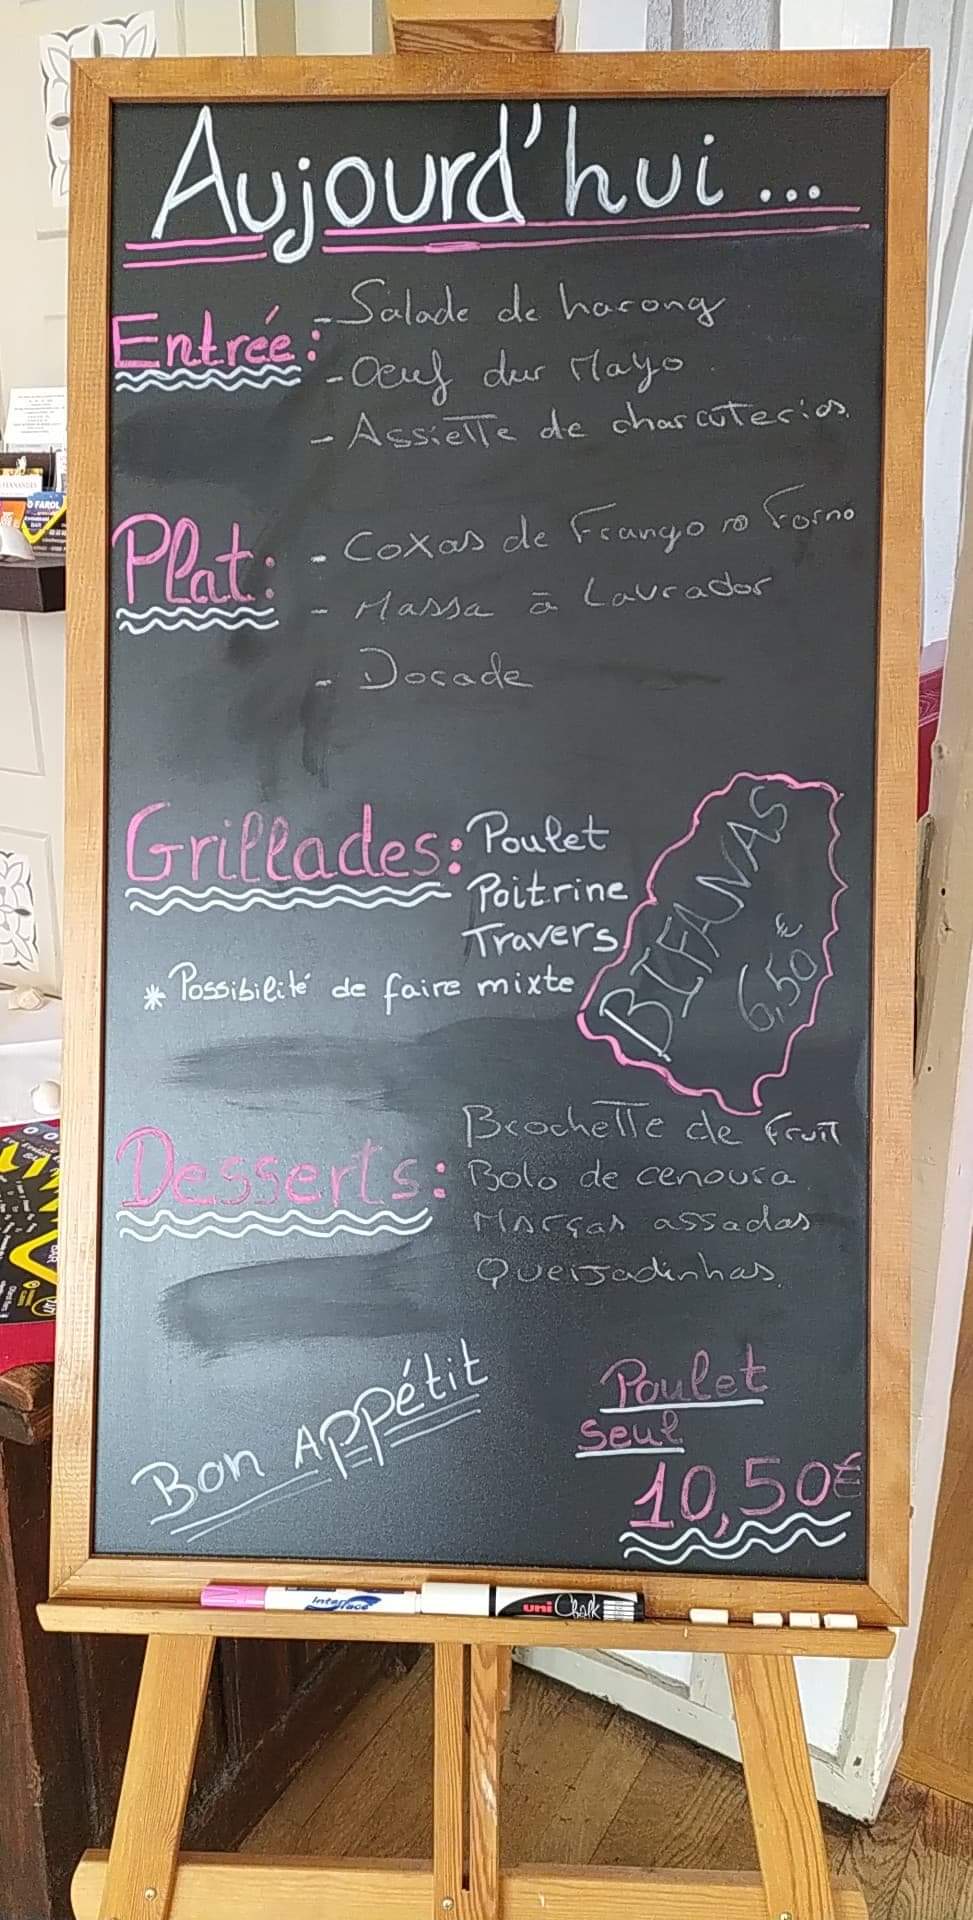 Aujourd'hui...
Entrée :
- Salade de hareng
- Oeuf dur Mayo
- Assiette de charcuteries.
Plat :
- Coxas de Frango no Forno
- Massa à Lavrador
- Dorade
Grillades : Poulet
Poitrine
Travers
* Possibilité de faire mixte
BIFANAS
6,50€
Desserts :
Brochette de Fruit
Bolo de cenoura
Marças assadas
Queijadinhas.
Bon Appétit
Poulet
Seul
10,50€
Interface
uni Chalk
O FAROL